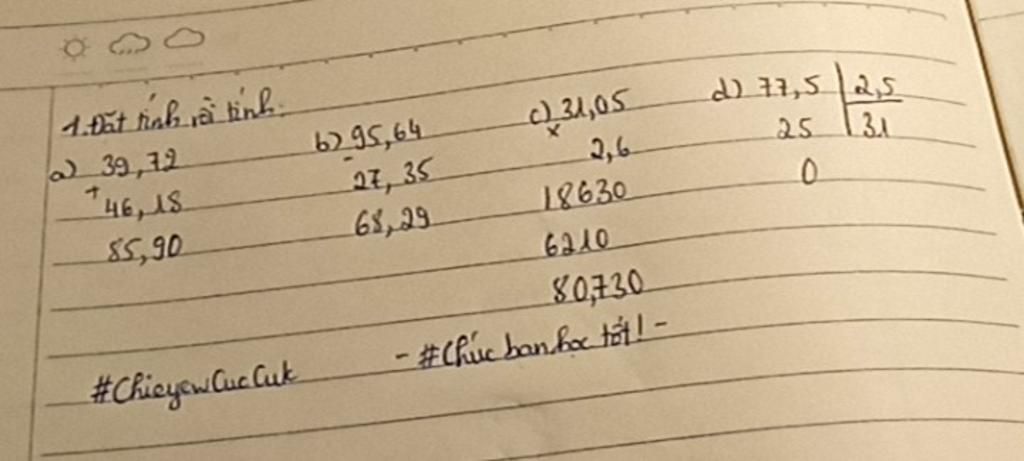 1. Đặt tính rồi tính.
a) 39,72 b) 95,64 c) 31,05 d) 77,5 | 2,5
+ 46,18 - 27,35 x 2,6 25 | 31
85,90 68,29 18630 0
6210
80,730
#ChieyewCucCuk -#Chúc bạn học tốt!-